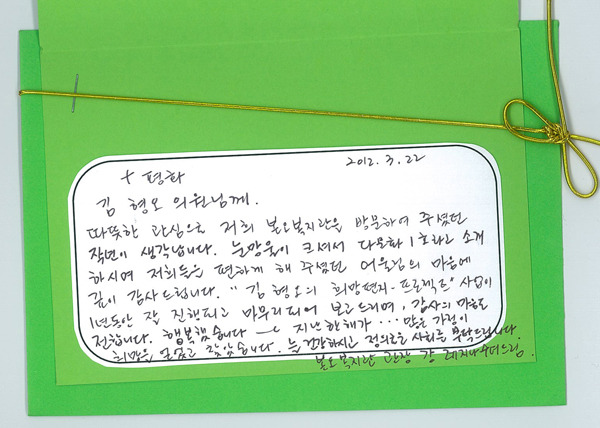 2012. 3. 22
+ 평화
김 형오 의원님께.
따뜻한 관심으로 저희 복지관을 방문하여 주셨던
작년이 생각납니다. 눈망울이 크셔서 다문화 1호라고 소개
하시며 저희들은 편하게 해 주셨던 어울님의 마음에
깊이 감사드립니다. "김 형오의 희망편지-프로젝트" 사업이
1년동안 잘 진행되고 마무리되어 보고드리며, 감사의 마음을
전합니다. 행복했습니다 ~ 지난 한해가 ... 많은 가정이
희망을 찾았습니다. 늘 건강하시고 정의로운 사회를 부탁드립니다
복지관 관장 강 레지나 수녀드림.